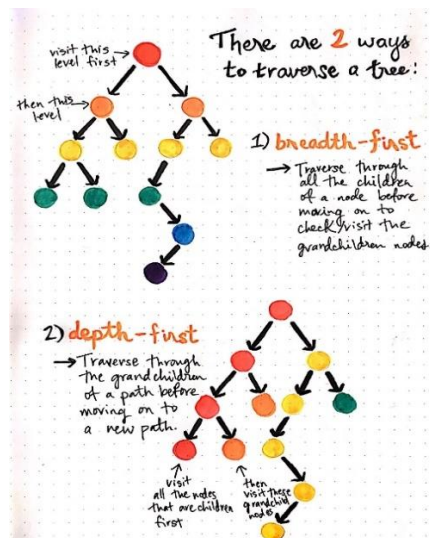 There are 2 ways
to traverse a tree:
visit this
level first
then this
level
1) breadth-first
→ Traverse through
all the children
of a node before
moving on to
check/visit the
grandchildren nodes
2) depth-first
→ Traverse through
the grandchildren
of a path before
moving on to
a new path.
visit
all the nodes
that are children
first
then
visit these
grandchild
nodes